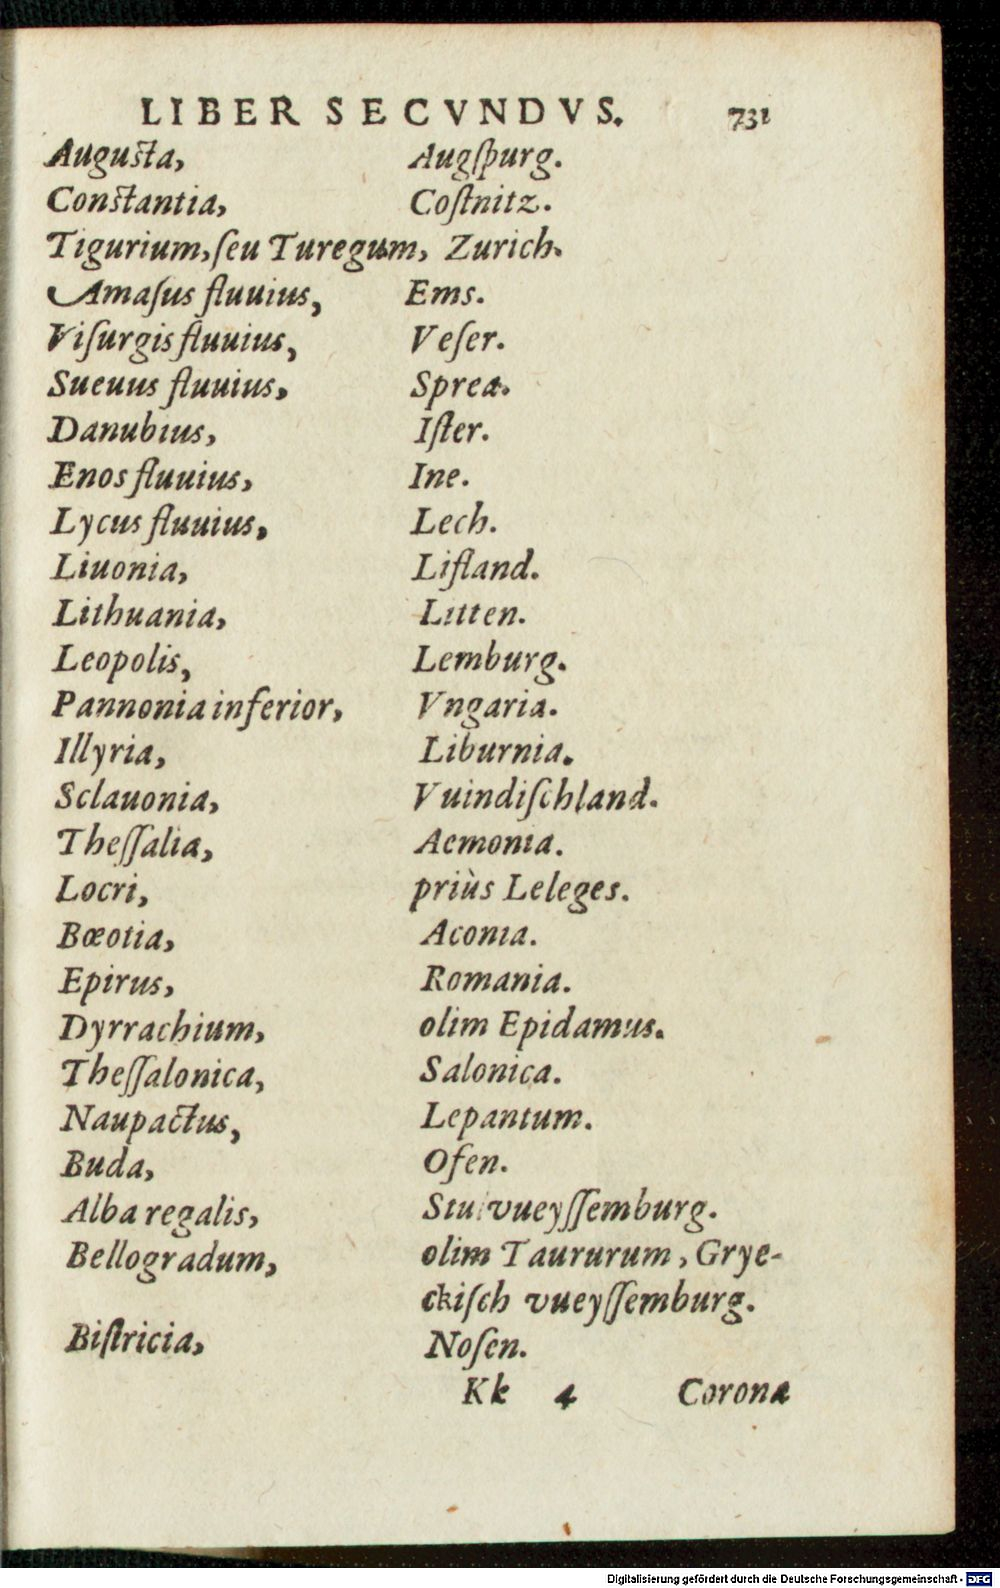 LIBER SECVNDVS. 731
Auguſta, Augſpurg.
Conſtantia, Coſtnitz.
Tigurium, ſeu Turegum, Zurich.
Amaſus fluuius, Ems.
Viſurgis fluuius, Veſer.
Sueuus fluuius, Sprea.
Danubius, Iſter.
Enos fluuius, Ine.
Lycus fluuius, Lech.
Liuonia, Lifland.
Lithuania, Litten.
Leopolis, Lemburg.
Pannonia inferior, Vngaria.
Illyria, Liburnia.
Sclauonia, Vuindiſchland.
Theſſalia, Aemonia.
Locri, priùs Leleges.
Bœotia, Aconia.
Epirus, Romania.
Dyrrachium, olim Epidamus.
Theſſalonica, Salonica.
Naupactus, Lepantum.
Buda, Ofen.
Alba regalis, Stulvueyſſemburg.
Bellogradum, olim Taururum, Grye-
ckiſch vueyſſemburg.
Biſtricia, Noſen.
Kk 4 Corona
Digitalisierung gefördert durch die Deutsche Forschungsgemeinschaft - DFG